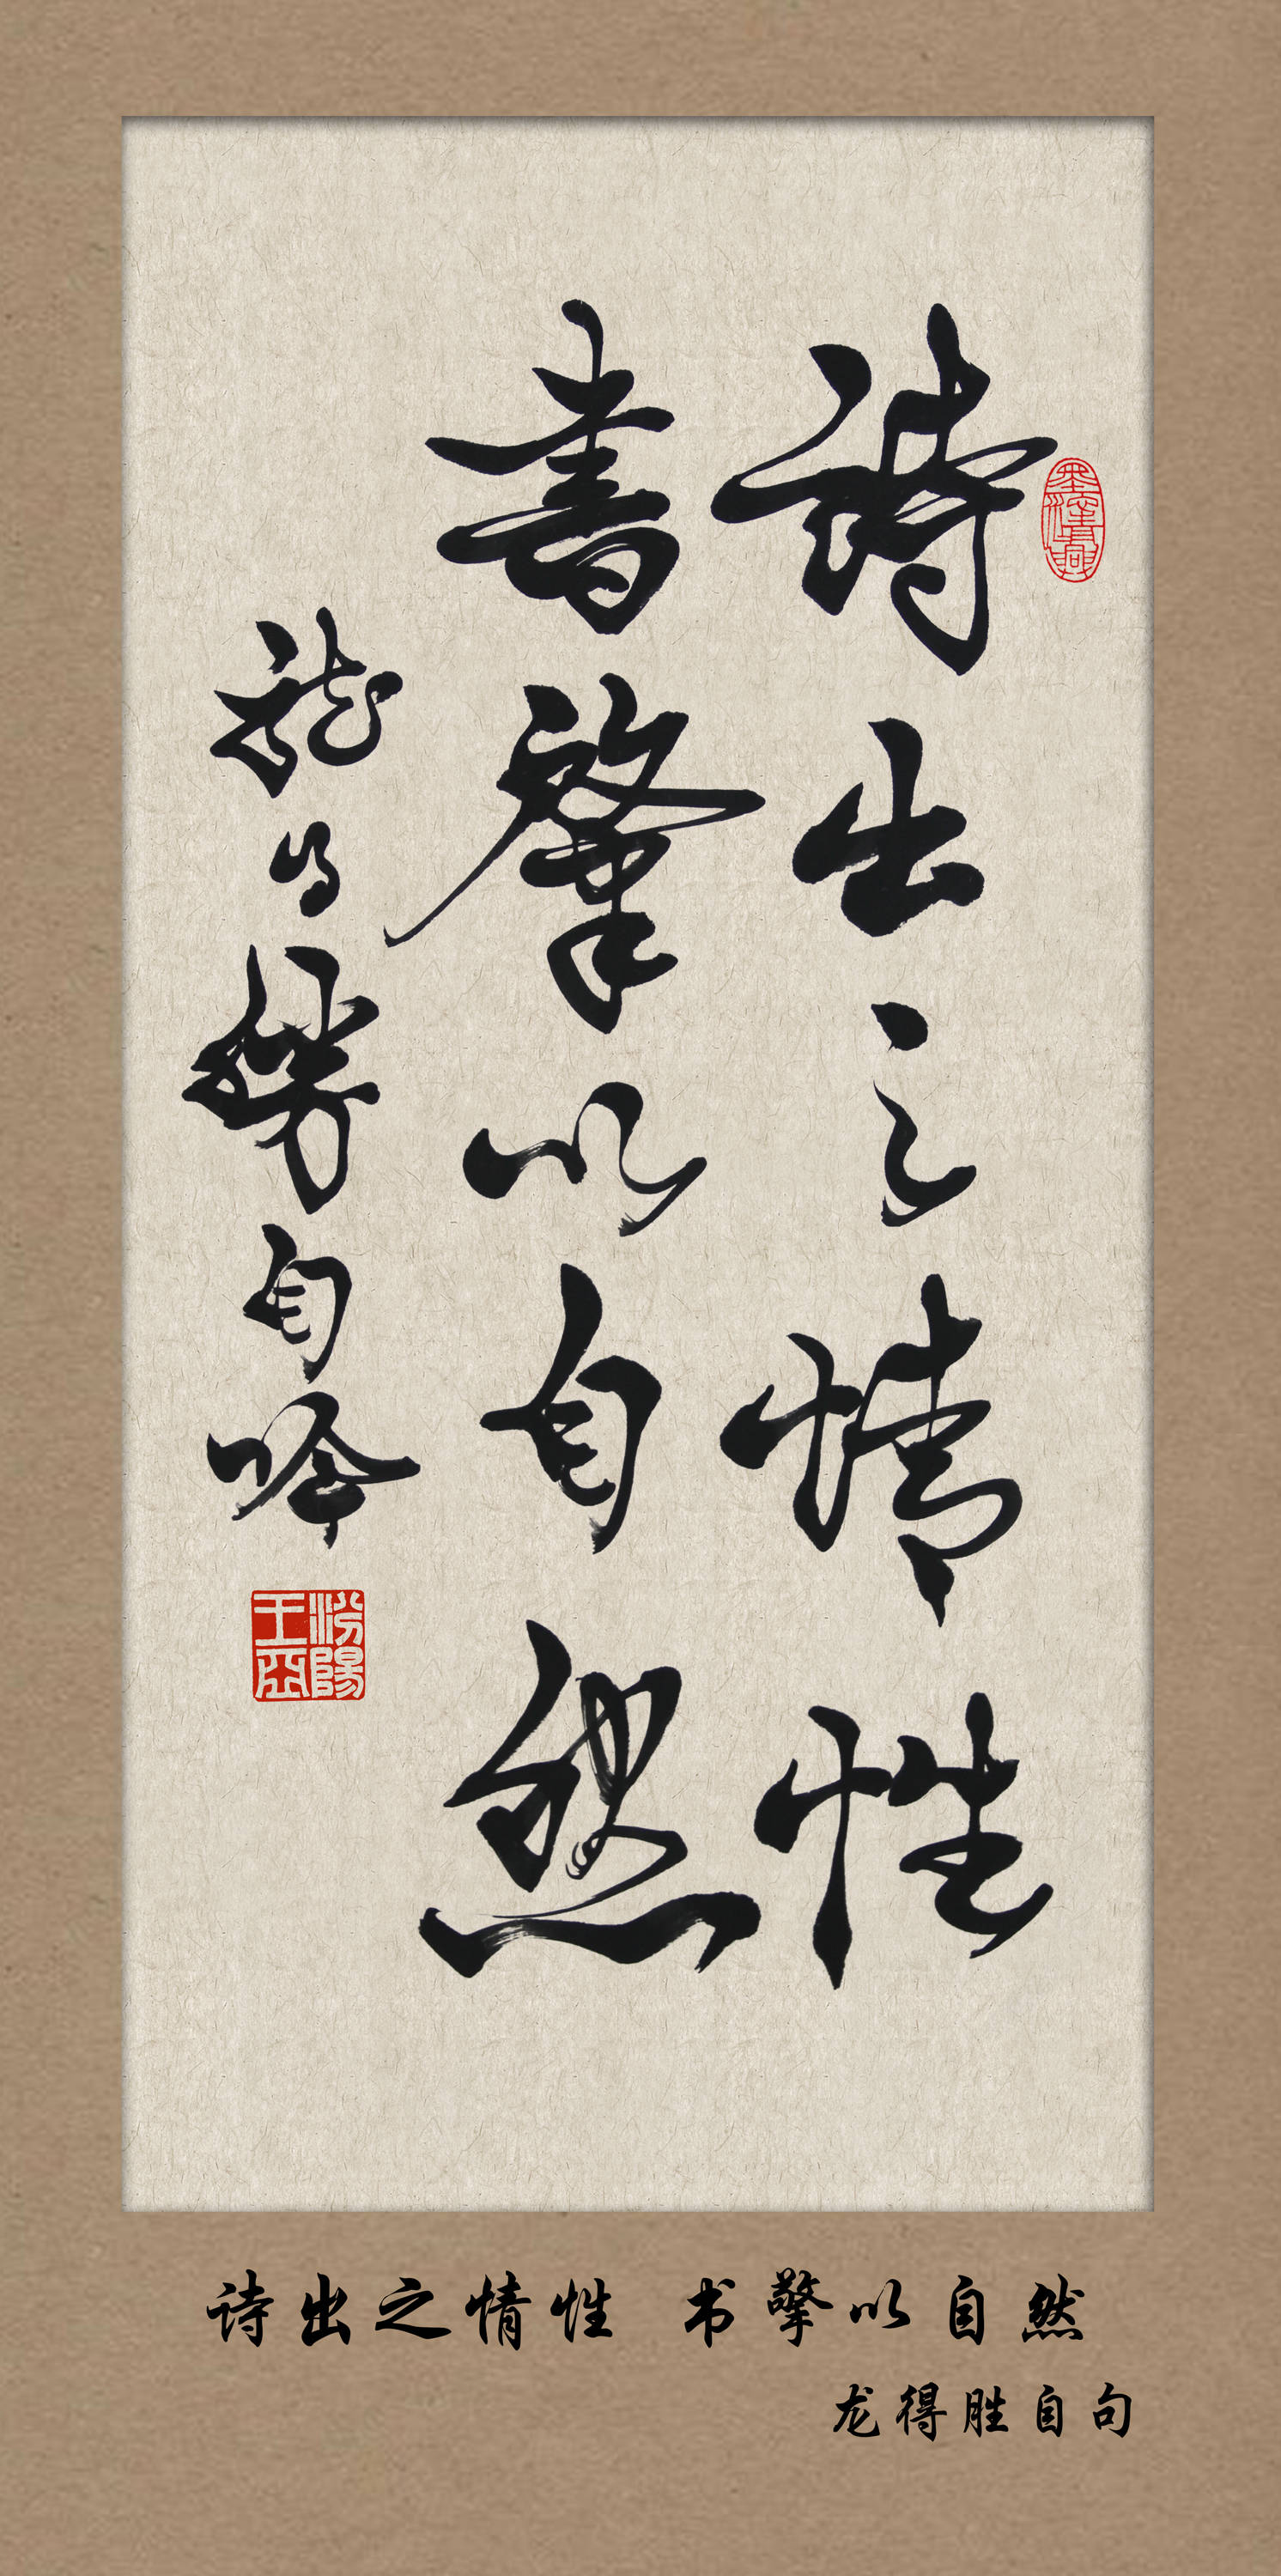 詩出之情性
書擎以自然
龍得勝自吟
汾陽
诗出之情性 书擎以自然
龙得胜自句